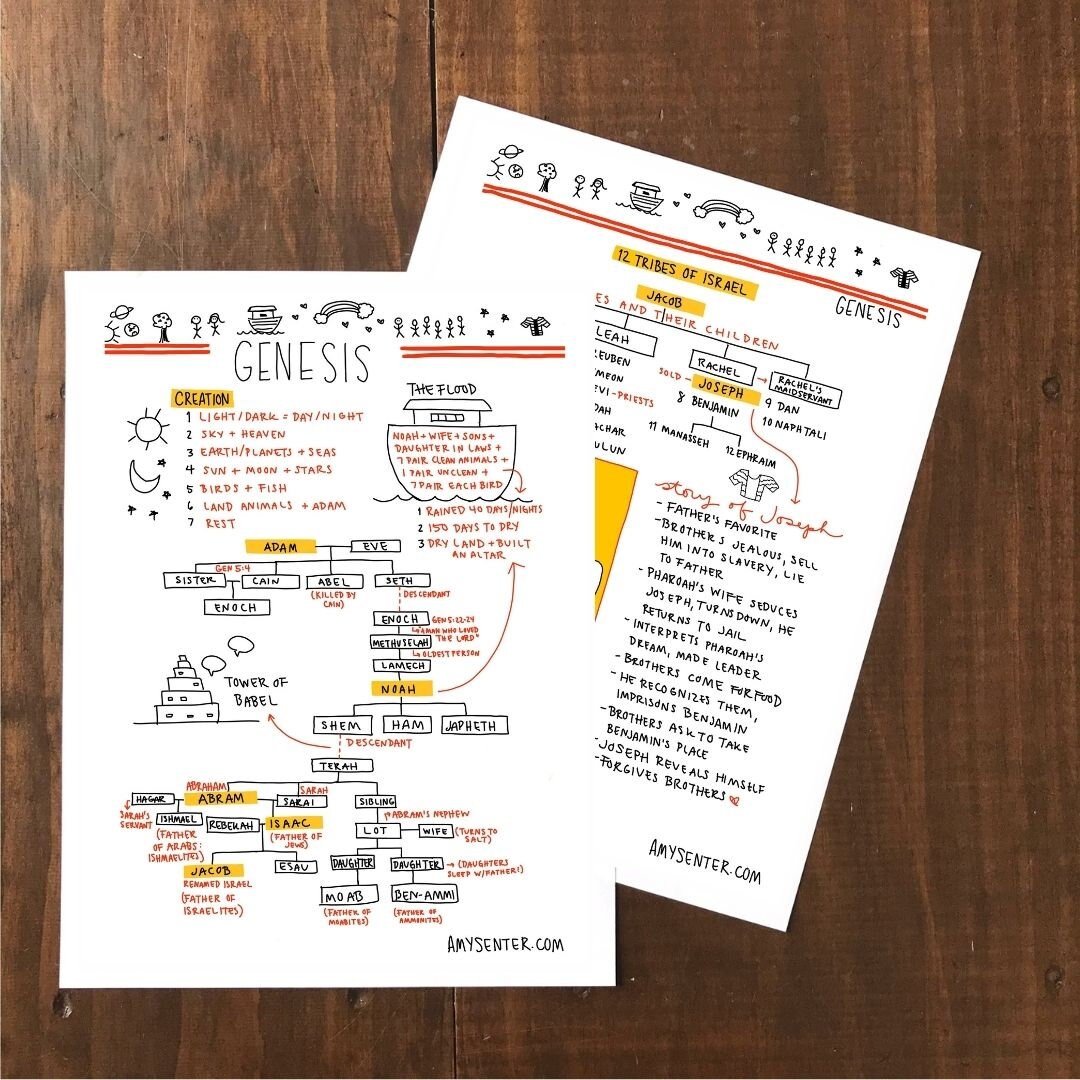 GENESIS
CREATION
1 LIGHT/DARK = DAY/NIGHT
2 SKY + HEAVEN
3 EARTH/PLANETS + SEAS
4 SUN + MOON + STARS
5 BIRDS + FISH
6 LAND ANIMALS + ADAM
7 REST
THE FLOOD
NOAH + WIFE + SONS +
DAUGHTER IN LAWS +
7 PAIR CLEAN ANIMALS +
1 PAIR UNCLEAN +
7 PAIR EACH BIRD
1 RAINED 40 DAYS/NIGHTS
2 150 DAYS TO DRY
3 DRY LAND + BUILT
AN ALTAR
ADAM
EVE
GEN 5:4
SISTER
CAIN
ABEL
SETH
(KILLED BY
CAIN)
DESCENDANT
ENOCH
ENOCH
GEN 5:22-24
"A MAN WHO LOVED
THE LORD"
METHUSELAH
OLDEST PERSON
LAMECH
NOAH
TOWER OF
BABEL
SHEM
HAM
JAPHETH
DESCENDANT
TERAH
ABRAHAM
SARAH
HAGAR
ABRAM
SARAI
SIBLING
SARAH'S
SERVANT
ISHMAEL
(FATHER
OF ARABS:
ISHMAELITES)
REBEKAH
ISAAC
(FATHER OF
JEWS)
ABRAM'S NEPHEW
LOT
WIFE
(TURNS TO
SALT)
JACOB
RENAMED ISRAEL
(FATHER OF
ISRAELITES)
ESAU
DAUGHTER
DAUGHTER
(DAUGHTERS
SLEEP W/FATHER!)
MOAB
BEN-AMMI
(FATHER OF
MOABITES)
(FATHER OF
AMMONITES)
AMYSENTER.COM
GENESIS
12 TRIBES OF ISRAEL
JACOB
ES AND THEIR CHILDREN
LEAH
RACHEL
RACHEL'S
MAIDSERVANT
EUBEN
MEON
EVI-PRIESTS
DAH
ACHAR
ULUN
SOLD
JOSEPH
8 BENJAMIN
9 DAN
10 NAPHTALI
11 MANASSEH
12 EPHRAIM
story of Joseph
- FATHER'S FAVORITE
- BROTHERS JEALOUS, SELL
HIM INTO SLAVERY, LIE
TO FATHER
- PHAROAH'S WIFE SEDUCES
JOSEPH, TURNS DOWN, HE
RETURNS TO JAIL
- INTERPRETS PHAROAH'S
DREAM, MADE LEADER
- BROTHERS COME FOR FOOD
- HE RECOGNIZES THEM,
IMPRISONS BENJAMIN
- BROTHERS ASK TO TAKE
BENJAMIN'S PLACE
- JOSEPH REVEALS HIMSELF
- FORGIVES BROTHERS
AMYSENTER.COM